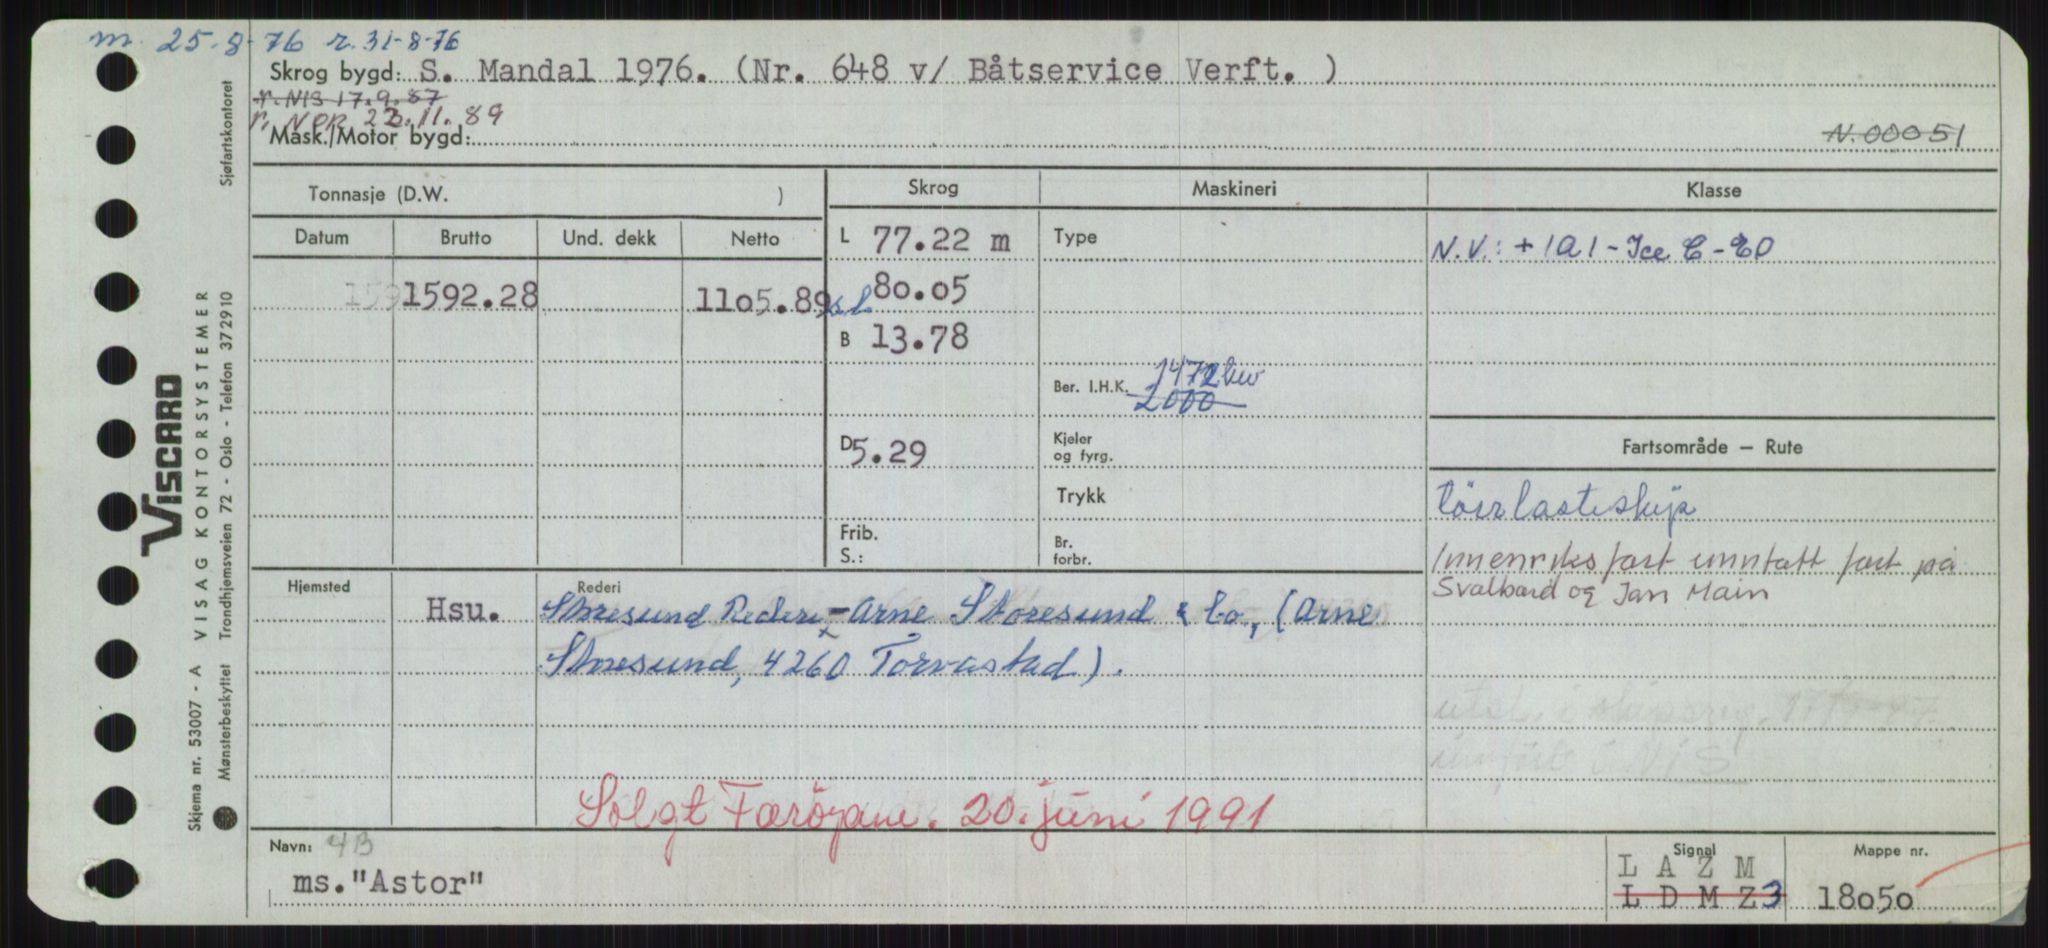 m. 25-8-76 r. 31-8-76
Skrog bygd: S. Mandal 1976. (Nr. 648 v/ Båtservice Verft. )
r. NIS 17.9.87
r. NOR 22.11.89
Mask./Motor bygd:
N.00051
Tonnasje (D.W. )
Skrog
Maskineri
Klasse
Datum
Brutto
Und. dekk
Netto
L 77.22 m
Type
N.V.: + 1A1 - Ice C - E0
159
1592.28
1105.89
s.l. 80.05
B 13.78
Ber. I.H.K. 1472 kw
2000
D 5.29
Kjeler
og fyrg.
Trykk
Frib.
S.:
Br.
forbr.
Fartsområde — Rute
törrlasteskip
Innenriks fart unntatt fart på
Svalbard og Jan Main
Hjemsted
Rederi
Hsu.
Storesund Rederi - Arne Storesund & Co, (Arne
Storesund, 4260 Torvastad).
innført i NIS
Solgt Færöyane. 20. juni 1991
Navn: 4B
ms."Astor"
Signal
L A Z M
L D M Z 3
Mappe nr.
18050
VISCARD
Skjema nr. 53007 - A VISAG KONTORSYSTEMER
Mønsterbeskyttet Trondhjemsveien 72 - Oslo - Telefon 372910 Sjøfartskontoret